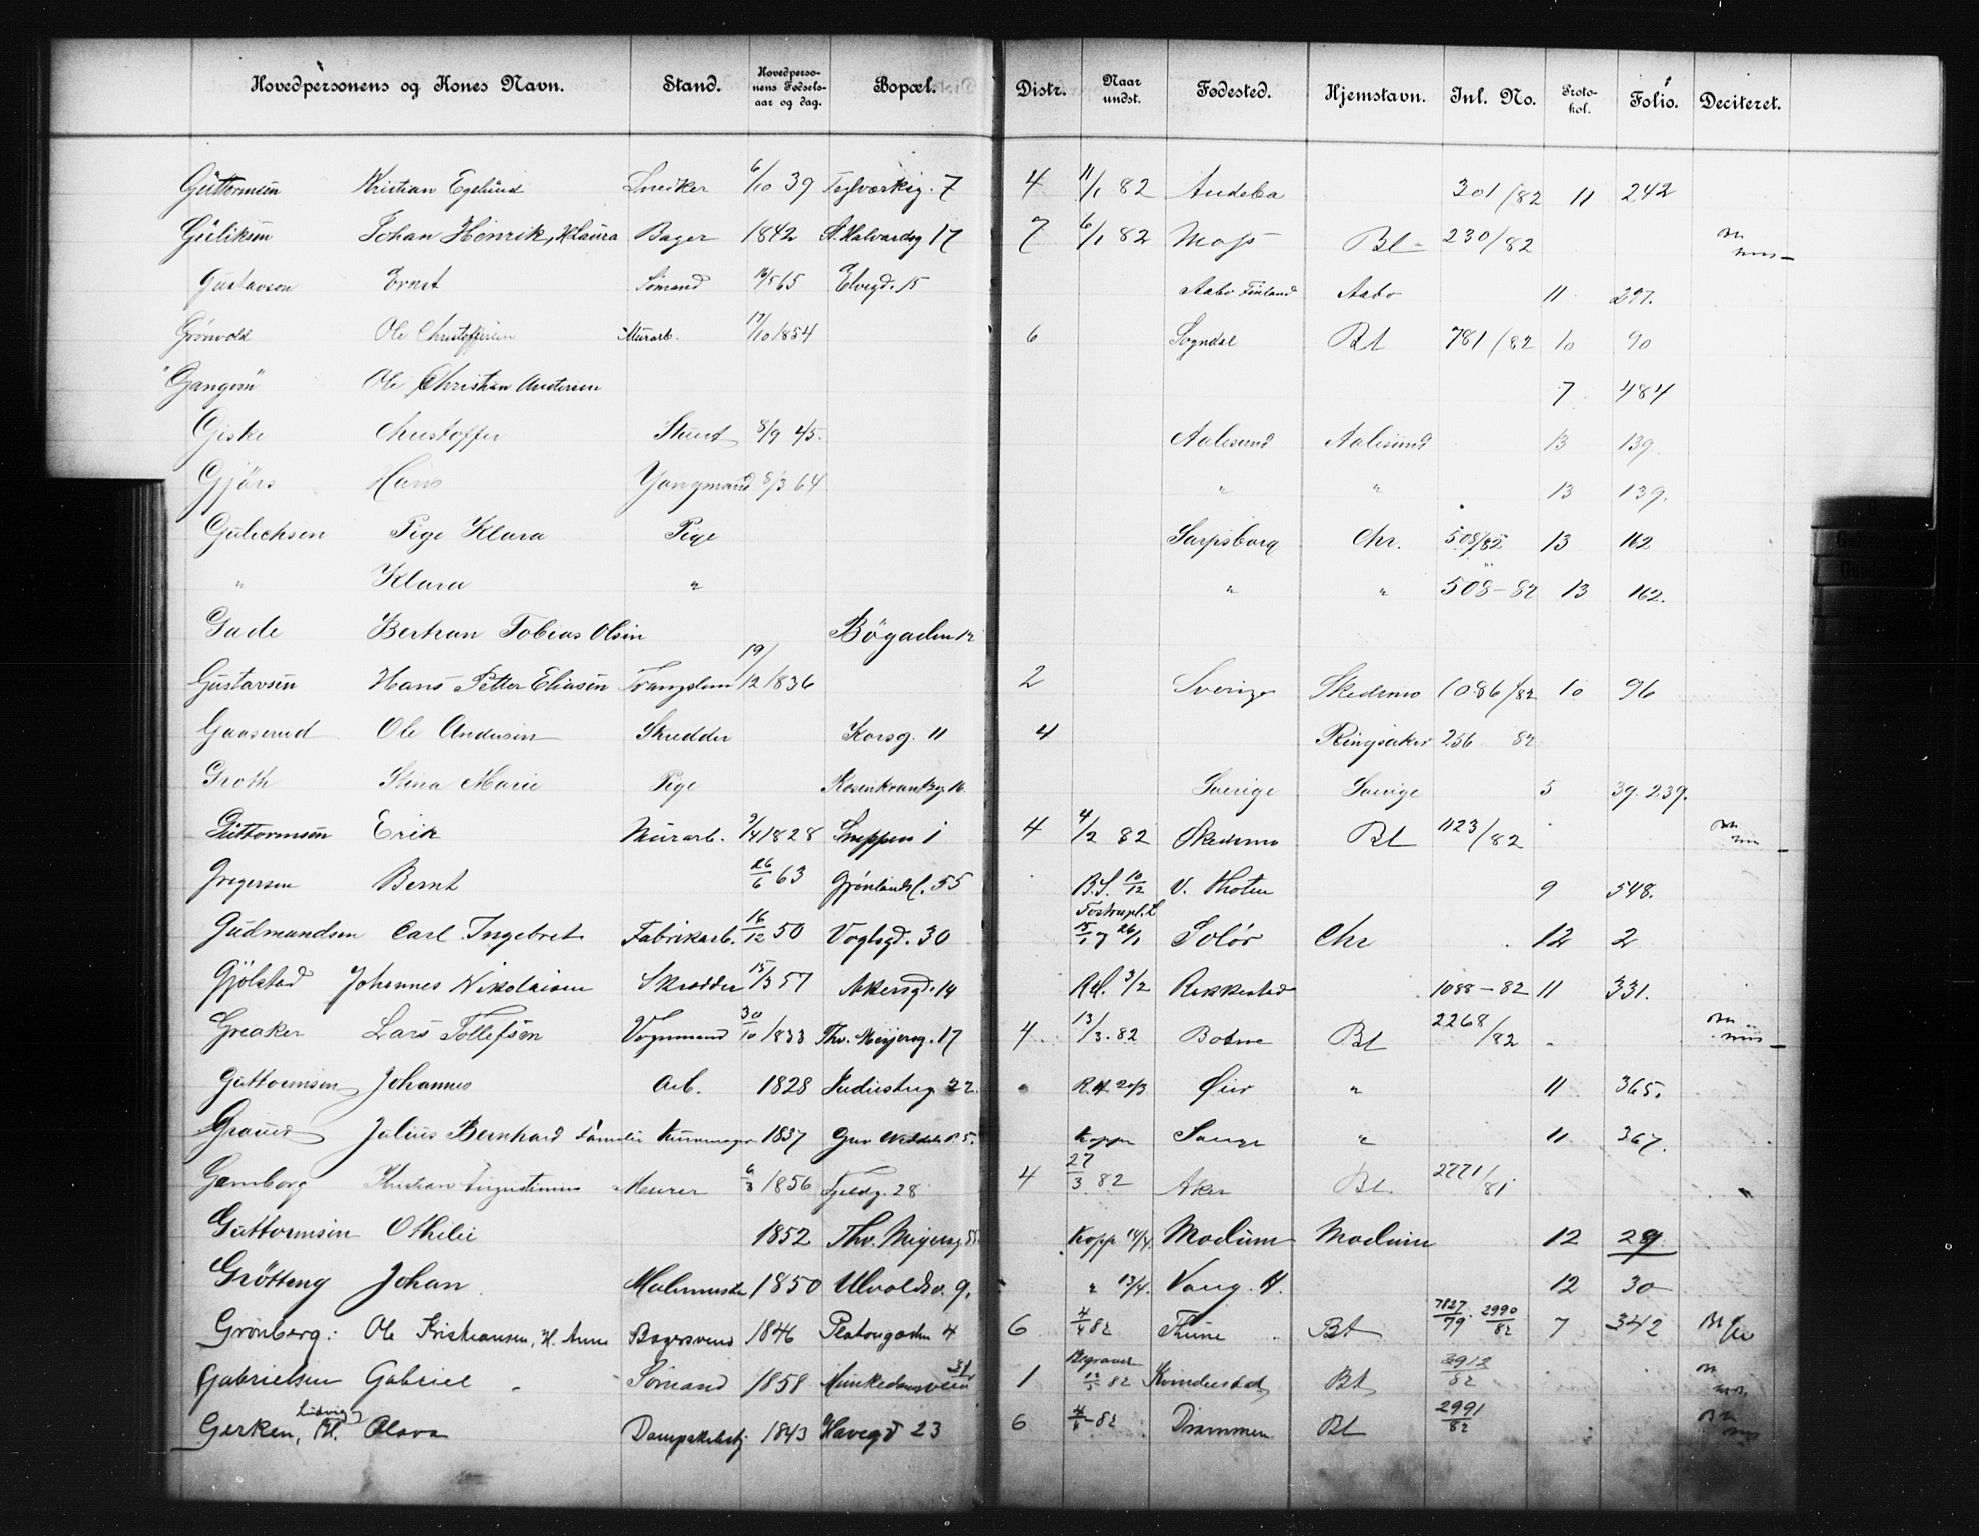 Hovedpersonens og Kones Navn. Stand. Hovedpersonens Fødselsaar og dag. Bopæl. Distr. Naar undst. Fødested. Hjemstavn. Inl. No. Protokol. Folio. Deciteret.
Guttormsen Kristian Egelund Snedker 6/10 39 Teglverksg. 7 4 11/1 82 Andebu 301/82 11 242
Guliksen Johan Henrik, H. Laura Bager 1842 St. Halvardsg 17 7 6/1 82 Moss Bt 230/82
Gustavson Ernst Sømand 65 Elvegd. 15 Aabo Finland Aabo 11 297.
Grönvold Ole Christoffersen Murarb. 17/10 1854 6 Sogndal Bt 781/82 10 90
"Gangvon" Ole Christian Andersen 7 484
Giske Christoffer Stuert 8/9 45. Aalesund Aalesund 13 139.
Gjörs Hans Yongmand 8/3 64 " " 13 139.
Gulichsen Pige Klara Pige Sarpsborg Chr. 508/82 13 162
" Klara " " " 508-82 13 162.
Gade Bertran Tobias Olsen Bögaden 12
Gustavsen Hans Petter Eliasen 19/12 1836 2 Sverige Skedsmo 1086/82 10 96
Gaaserud Ole Andersen Skredder Korsg. 11 4 Ringsaker 256 82
Groth Stina Marie Pige Rosenkrantzg 16 Sverige Sverige 5 39. 239.
Guttormsen Erik Murarb. 9/4 1828 Snippen 1 4 4/2 82 Skedsmo Bt 1123/82
Gregersen Bernt 26/6 63 Grönlandsl. 55 B.S. 10/12 V. Thoten 9 548.
Gudmundsen Carl Ingebret Fabrikarb. 16/12 50 Vogtsgd. 30 26/1 Solör Chr 12 2
Gjölstad Johannes Nikolaisen Skredder 15/3 57 Akersgd. 14 3/2 Rakkestad 1088-82 11 331.
Greaker Lars Tollefsen Vognmand 30/10 1833 Thv. Meyersg. 17 4 13/3. 82 Botne Bt 2268/82
Guttormsen Johannes Arb. 1828 Industrig 22. 20/3 Øier " 11 365.
Graued Julius Bernhard Familie 1837 Kopp " 11 367.
Gamborg Kristian Augustinius Murer 6/3 1856 Fjeldg. 28 4 27/3 82 Aker Bt. 2771/81.
Guttormsen Othelie 1852 Thv. Meyersg 55 Kopp Modum Modum 12 29
Grötteng Johan 1850 Ulvoldsv. 9. " 13/4. Vang. H. 12 30
Grönberg: Ole Kristiansen, H. Anne Bagersvend 1846 Platougaden 4 6 4/4 82 Thune Bt 7827/79. 2990/82 7 342
Gabrielsen Gabriel Sömand 1858 Munkedamsveien 31 1 82 Bt 3913/82
Gerken, Ludvig H. Olava Dampskibstj 1843 Havegd 23 6 82 Drammen Bt 2991/82